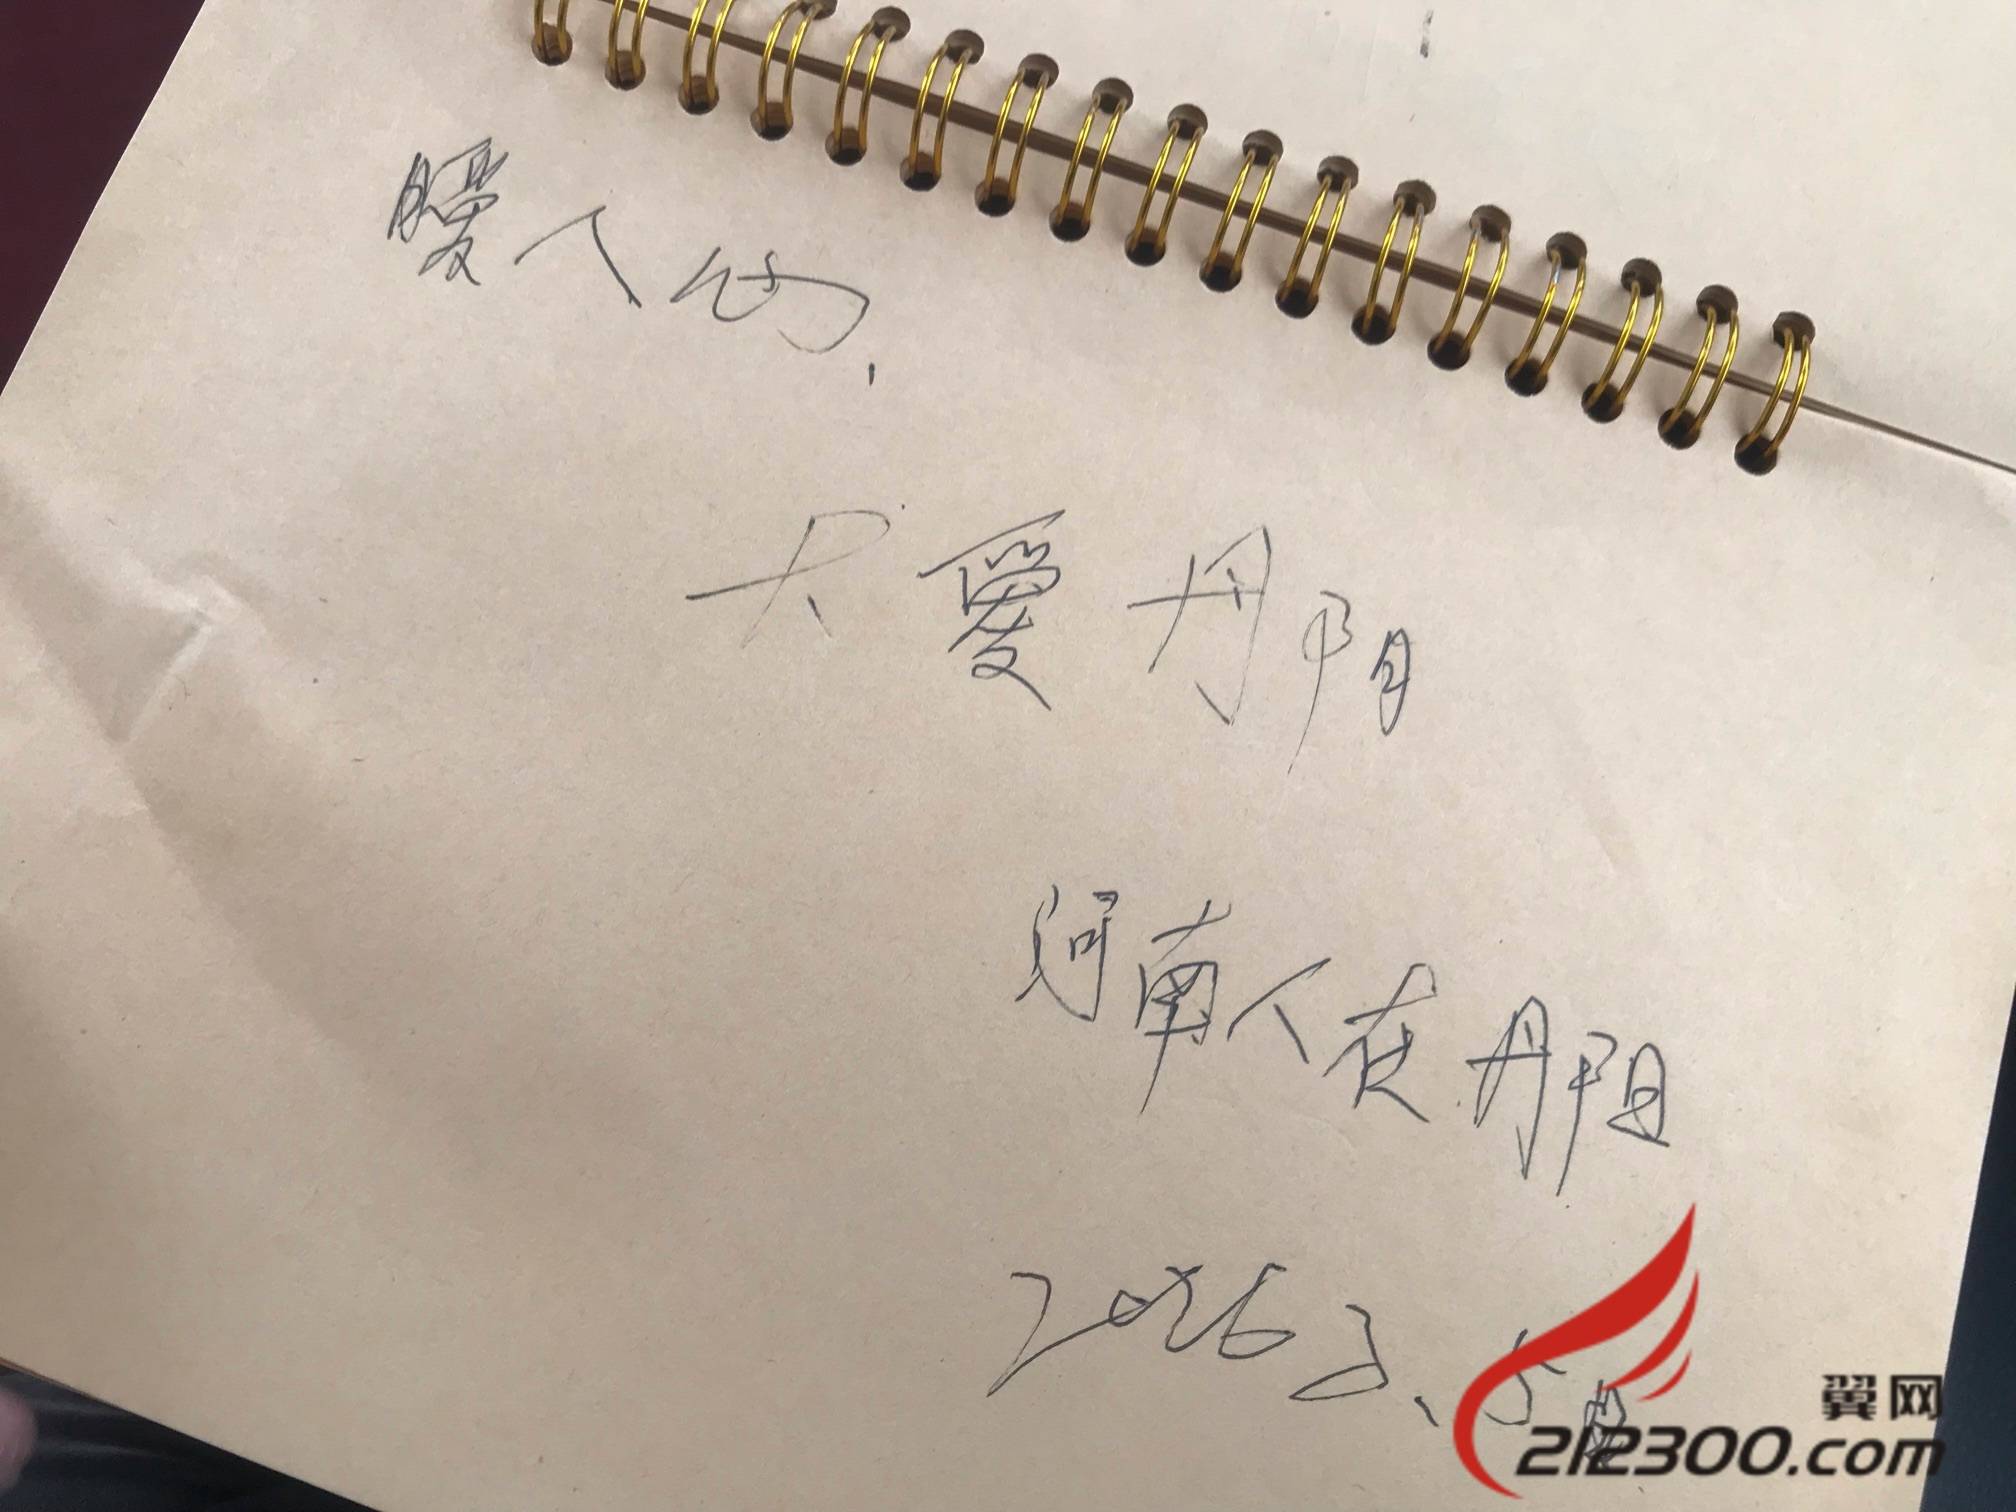 暖人心,
大爱丹阳
河南人在丹阳
2026 3、5日
翼网
212300.com